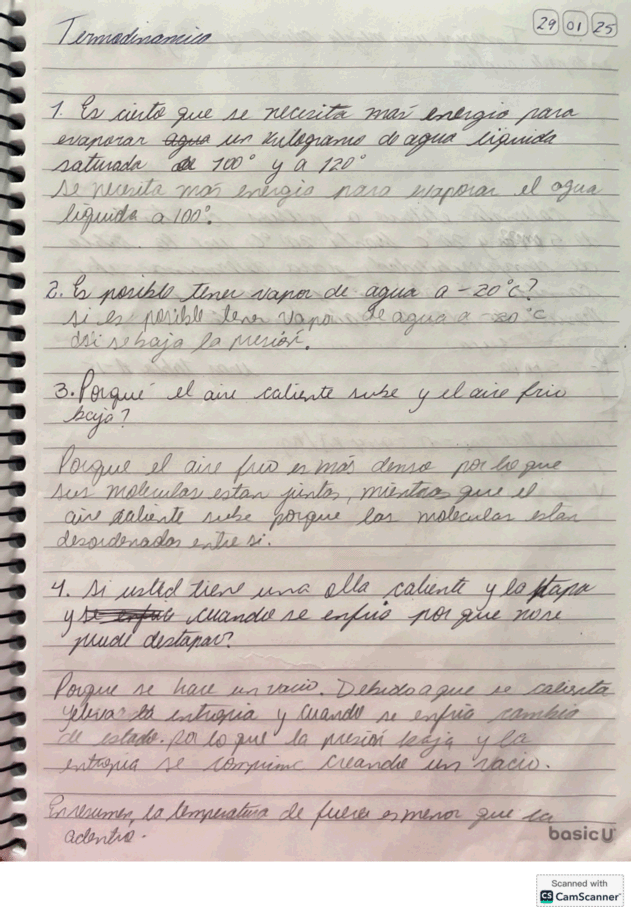 29 01 25
Termodinamica
1. Es cierto que se necesita mas energia para
evaporar agua un kilogramo de agua liquida
saturada a 100° y a 120°
se necesita mas energia para evaporar el agua
liquida a 100°.
2. Es posible tener vapor de agua a -20°c?
si es posible tener vapor de agua a -20°c
si se baja la presión.
3. Porqué el aire caliente sube y el aire frio
baja?
Porque el aire frio es más denso por lo que
sus moleculas estan juntas, mientras que el
aire caliente sube porque las moleculas estan
desordenadas entre si.
4. Si usted tiene una olla caliente y la tapa
y se enfria cuando se enfria por que no se
puede destapar?
Porque se hace un vacio. Debido a que se calienta
y eleva la entropia y cuando se enfria cambia
de estado. Por lo que la presión baja y la
entropia se comprime creando un vacio.
En resumen, la temperatura de fuera es menor que la
adentro.
basicU
Scanned with
CS CamScanner